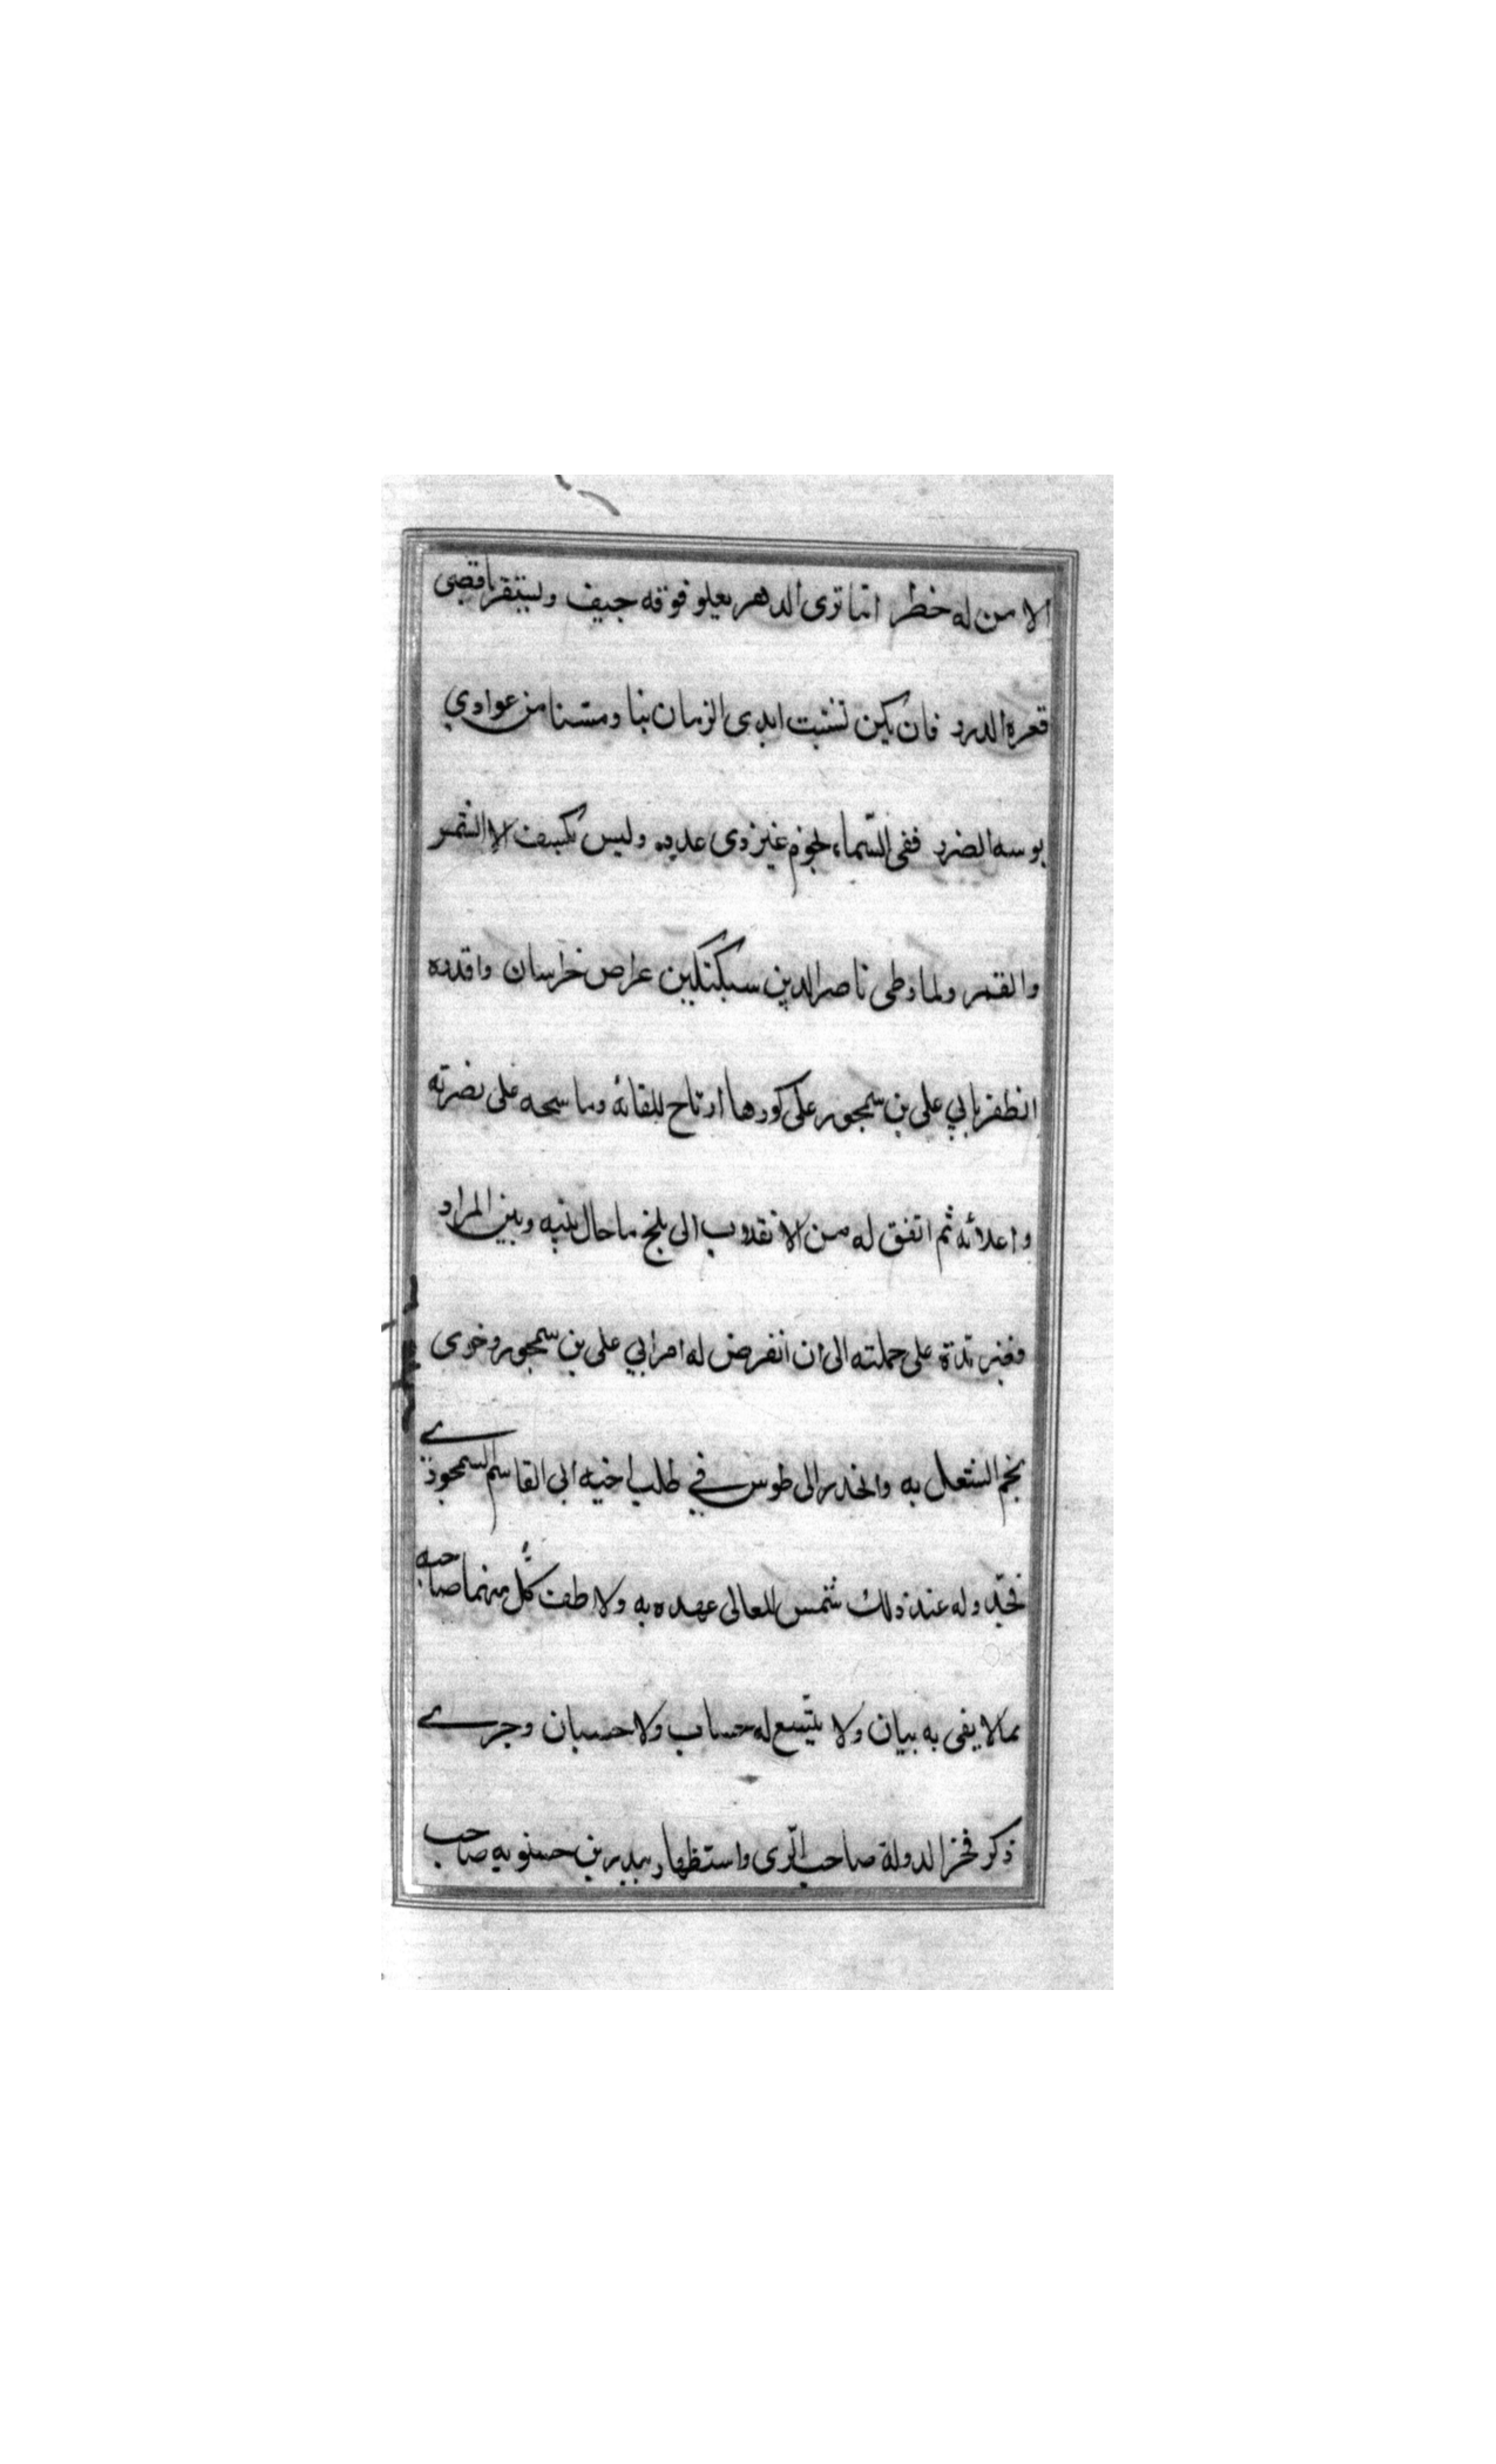 الا من له خطر اما ترى الدهر يعلو فوقه جيف ويستقر باقصى
قعره الدرر فان يكن تشبثت ايدى الزمان بنا ومسنا من عوادي
بوسه الضرر ففى السّماء نجوم غير ذى عدده وليس يكسف الا الشمس
والقمر ولما وطى ناصر الدين سبكتكين عراص خراسان واقدره
الظفر بابي على بن سمجور على كورها ارتاح للقائه وما سحه على نصرته
واعلائه ثم اتفق له من الانقلاب الى بلخ ما حال بينه وبين المراد
فغبر مدة على حملته الى ان انقرض له امر ابي على بن سمجور وخوى
نجم الشتعل به وانحدر الى طوس في طلب اخيه ابى القاسم السمجورى
فجدّد له عند ذلك شمس المعالى عهده به ولاطف كل منهما صاحبه
بما لا يفى به بيان ولا يتّسع له حساب ولا حسبان وجرى
ذكر فخر الدولة صاحب الرّى واستظهاره ببدر بن حسنويه صاحب